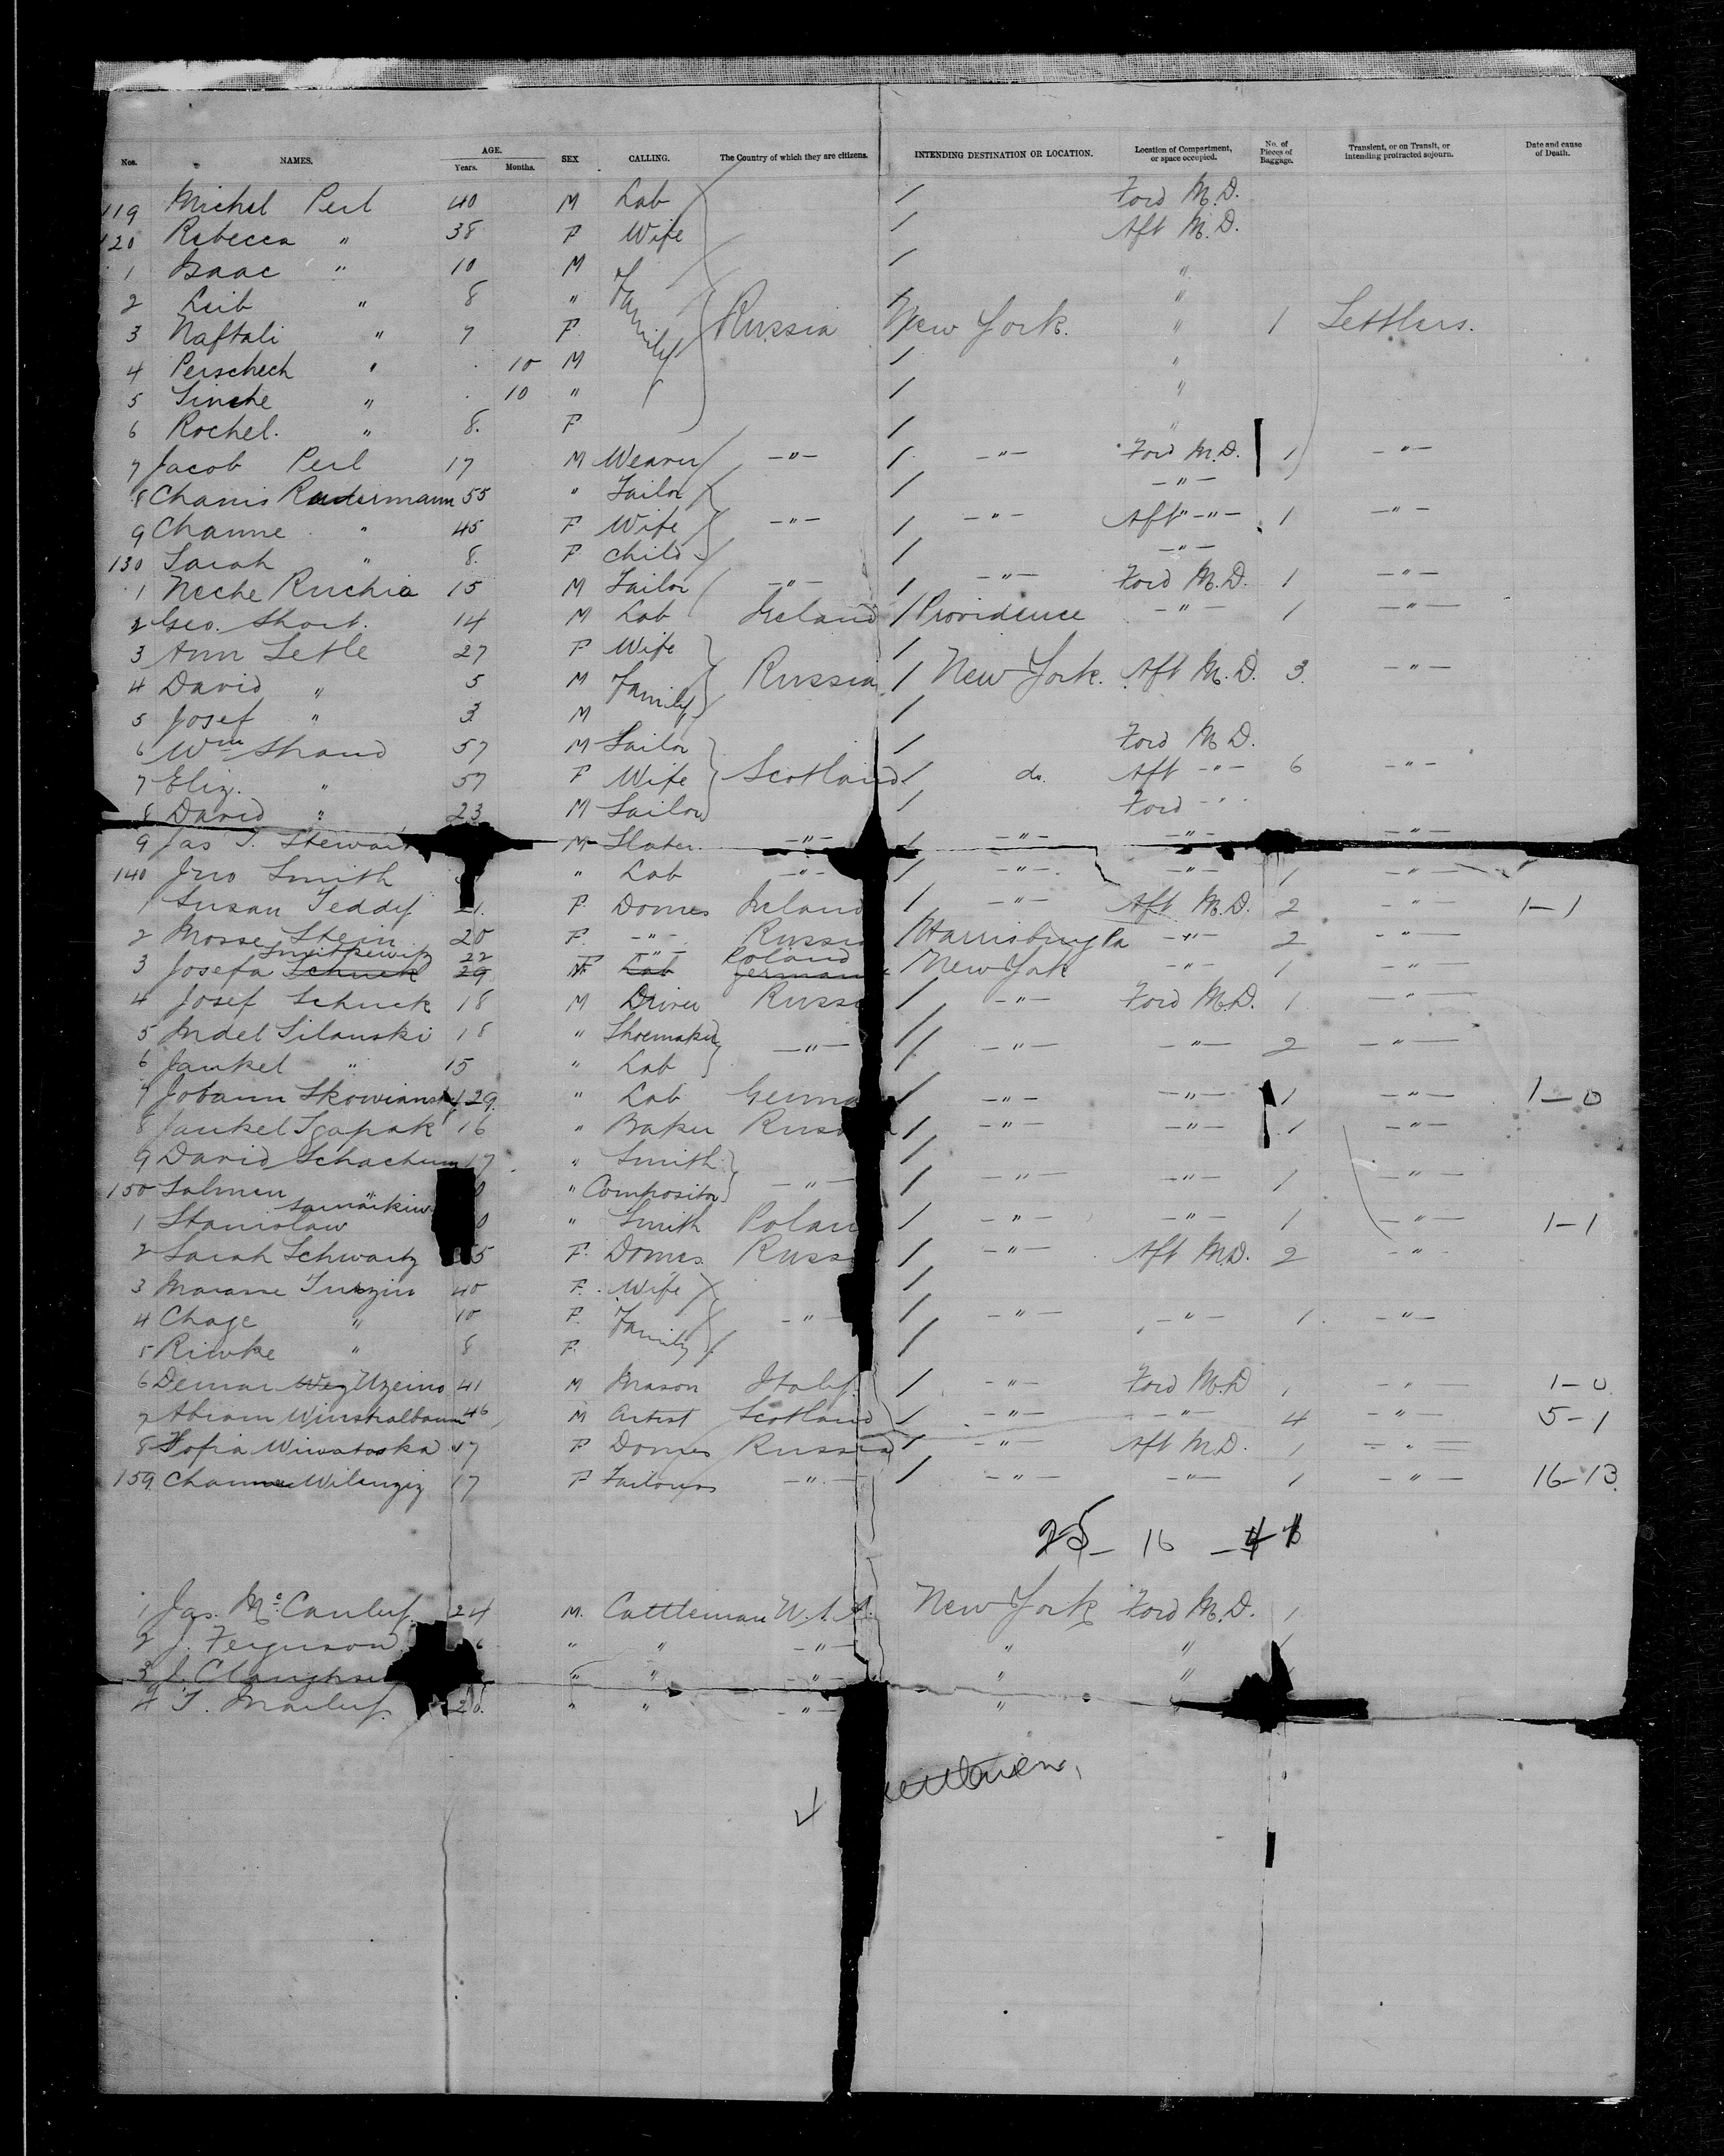 Nos. NAMES. AGE. Years. Months. SEX CALLING. The Country of which they are citizens. INTENDING DESTINATION OR LOCATION. Location of Compartment, or space occupied. No. of Pieces of Baggage. Transient, or on Transit, or intending protracted sojourn. Date and cause of Death.
119 Michel Perl 40 M Lab / Ford M.D.
120 Rebecca " 38 F Wife / Aft M.D.
1 Isaac " 10 M Family / "
2 Leib " 8 " / "
3 Naftali " 7 F Russia / New York. " 1 Settlers.
4 Perschech " 10 M / "
5 Sinche " 10 " / "
6 Rochel. " 8. F / "
7 Jacob Perl 17 M Weaver -"- / -"- Ford M.D. 1 -"-
8 Chanis Rudermann 55 " Tailor / -"-
9 Channe " 45 F Wife -"- / -"- Aft -"- 1 -"-
130 Sarah " 8. F Child / -"-
1 Neche Ruchia 15 M Tailor -"- / -"- Ford M.D. 1 -"-
2 Geo. Short. 14 M Lab Ireland / Providence -"- 1 -"-
3 Ann Setle 27 F Wife /
4 David " 5 M Family Russia / New York. Aft M.D. 3. -"-
5 Josef " 3 M /
6 Wm Shand 57 M Sailor / Ford M.D.
7 Eliz. " 57 F Wife Scotland / do. Aft -"- 6 -"-
8 David " 23 M Sailor / Ford -"-
9 Jas T. Stewart M Slater. -"- / -"- -"- -"-
140 Jno Smith " Lab -"- / -"- -"- 1 -"-
1 Susan Teddy 21. F Domes Ireland / -"- Aft M.D. 2 -"- 1-1
2 Mosse Stein 20 F. -"- Russia / Harrisburg Pa -"- 2 -"-
3 Josefa Schuck 29 22 F Lab -"- Germany Poland / New York -"- 1 -"-
4 Josef Schuck 18 M Driver Russ / -"- Ford M.D. 1 -"-
5 Mdel Silanski 18 " Shoemaker -"- / -"- -"- 2 -"-
6 Jankel " 15 " Lab /
7 Johann Skowianski 29. " Lab Germa / -"- -"- 1 -"- 1-0
8 Jankel Sgapak 16 " Baker Russ / -"- -"- 1 -"-
9 David Schachum 17 " Smith /
150 Salmen " " Compositor -"- / -"- -"- 1 -"-
1 Stanislaw Samarkiw " Smith Polan / -"- -"- 1 -"- 1-1
2 Sarah Schwartz 5 F. Domes. Russ / -"- Aft M.D. 2 -"-
3 Marane Turzin 40 F. Wife /
4 Chage " 10 F. Family -"- / -"- -"- 1. -"-
5 Riwke " 8 F. /
6 Demar Weg Uzeino 41 M Mason Italy. / -"- Ford M.D 1 -"- 1-0
7 Abram Winstralbaum 46 M Artist Scotland / -"- -"- 4 -"- 5-1
8 Sofia Wiwatoska 17 F Domes Russia / -"- Aft M.D. 1 -"-
159 Channe Wilenziz 17 F Tailoress -"- / -"- -"- 1 -"- 16-13
25- 16 -
1 Jas. McCauley. 24 M. Cattleman U.S.A. New York Ford M.D. 1
2 J. Ferguson. " " -"- " "
3 " " -"- " "
4 T. Marley. " " -"- "